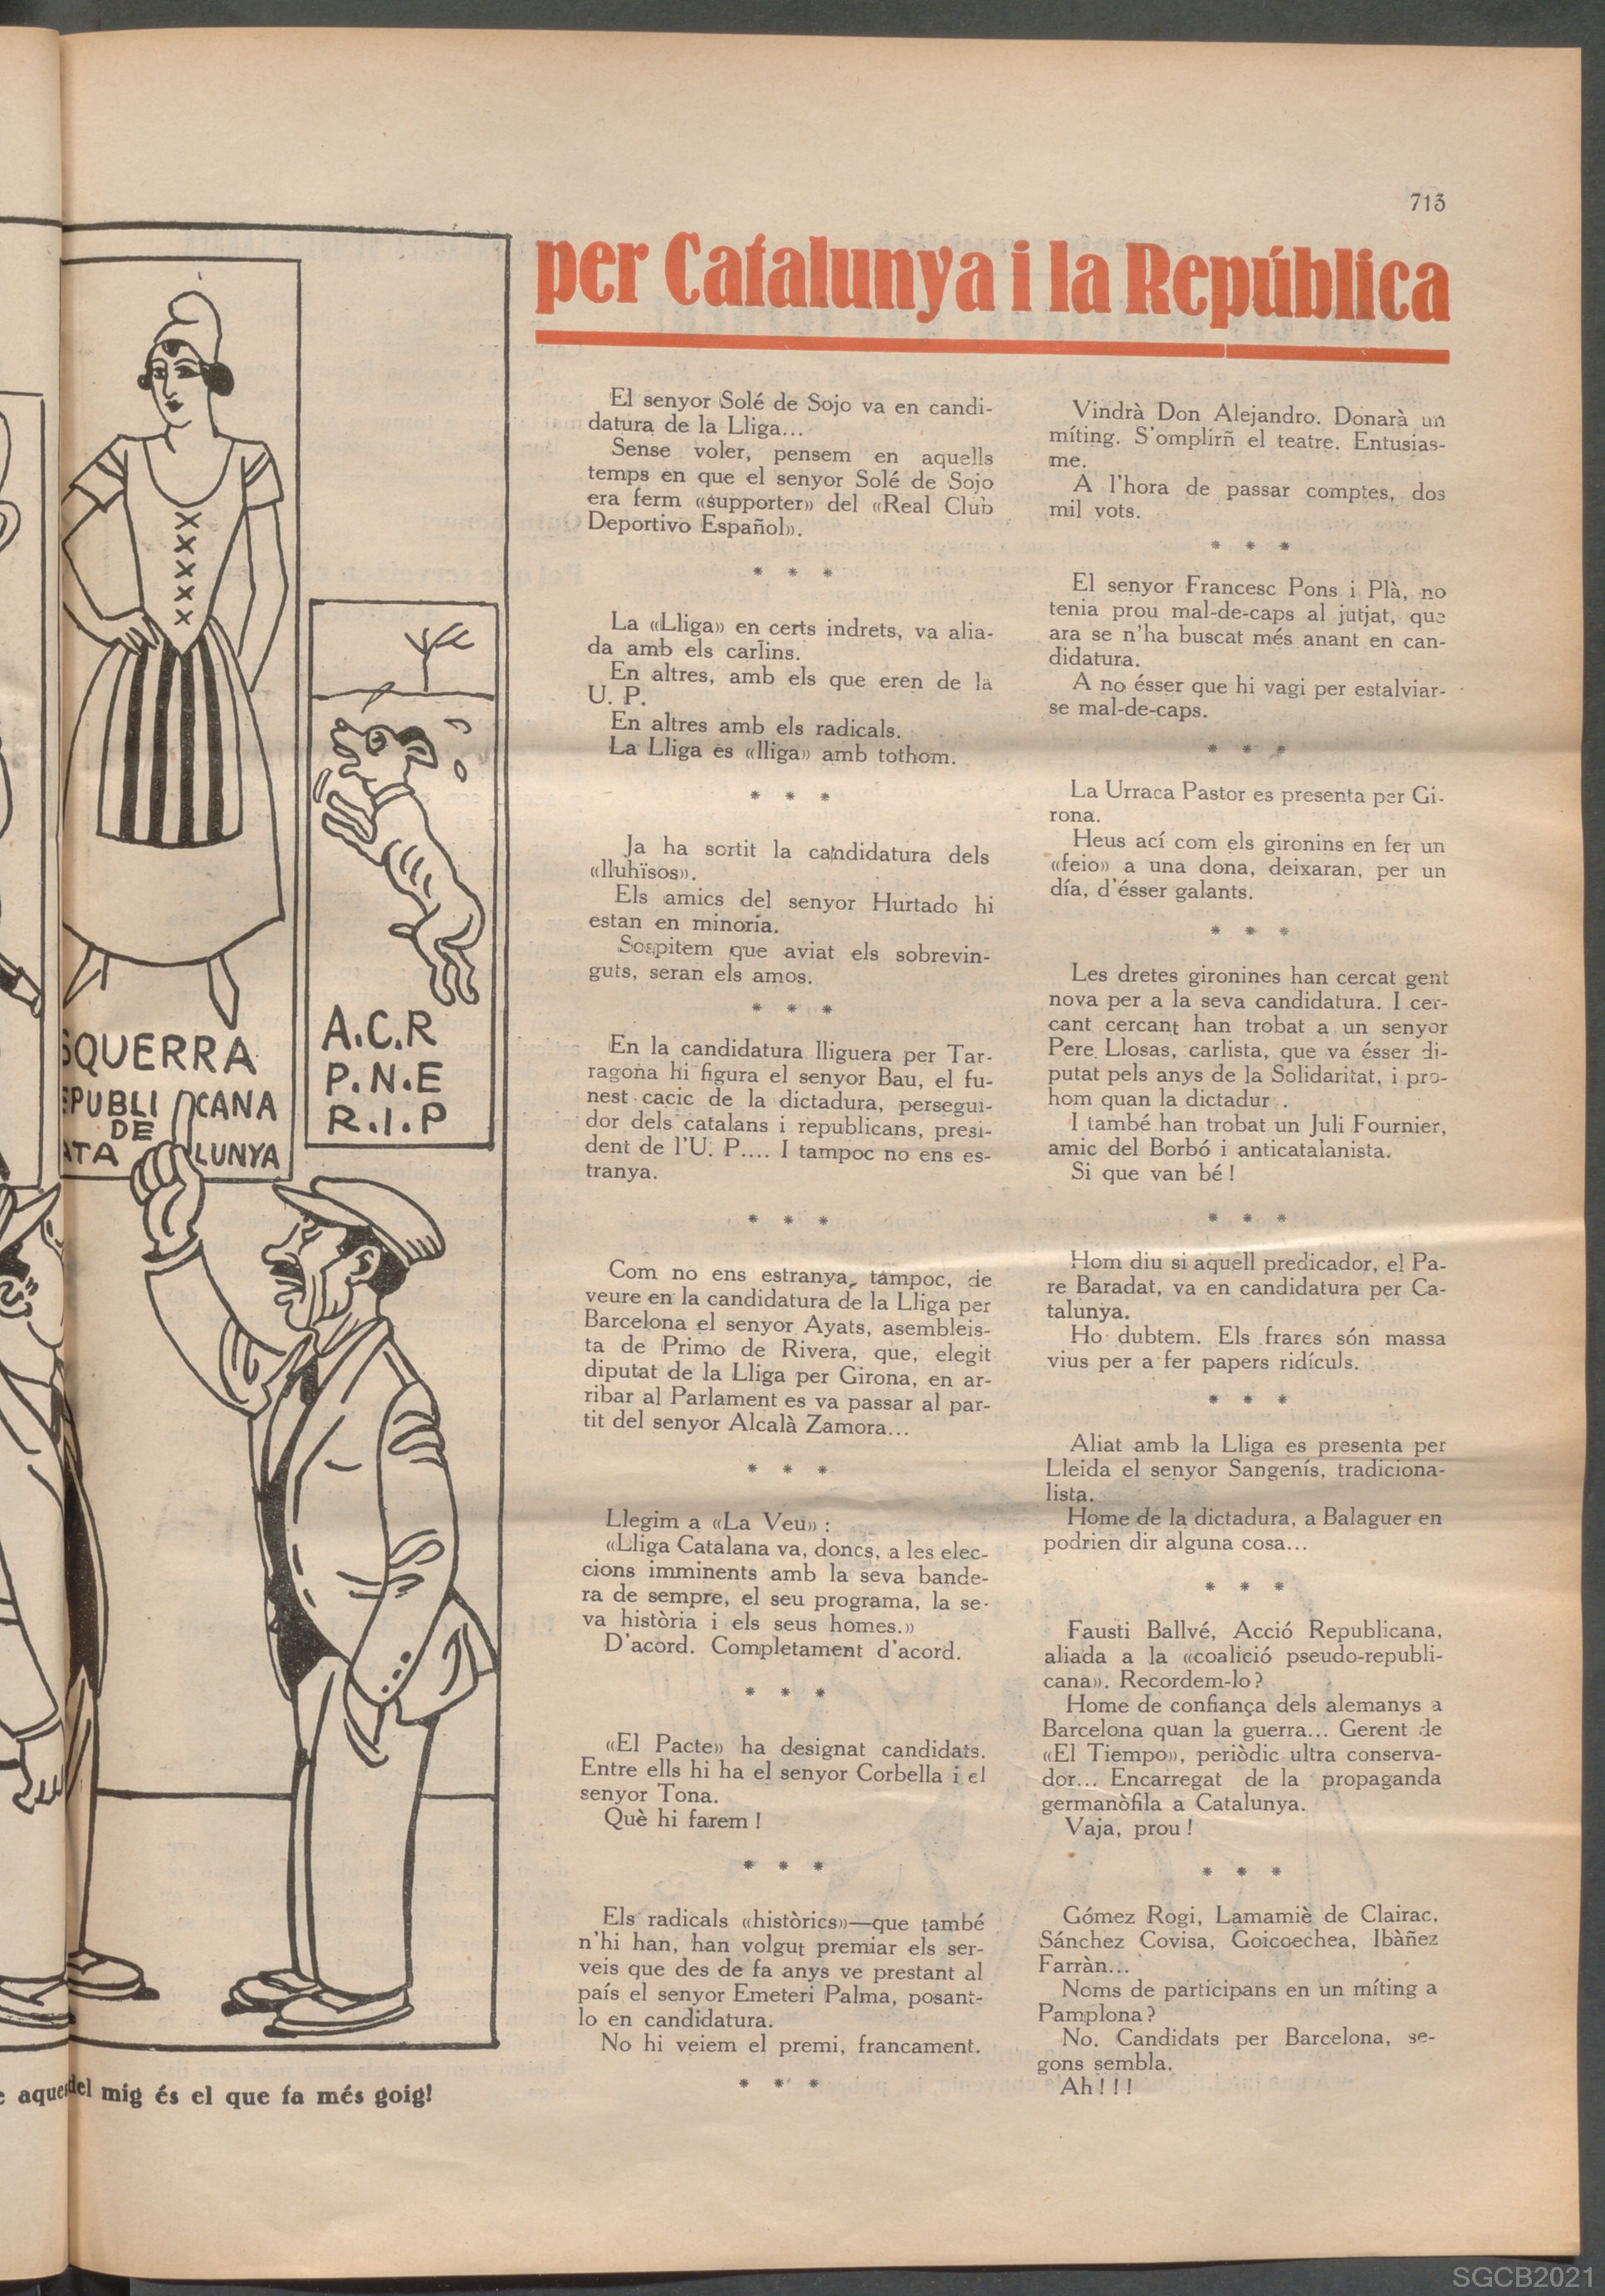 713
per Catalunya i la República
SQUERRA
EPUBLI CANA
DE
ATA LUNYA
A.C.R
P.N.E
R.I.P
aques del mig és el que fa més goig!
El senyor Solé de Sojo va en candi-
datura de la Lliga...
Sense voler, pensem en aquells
temps en que el senyor Solé de Sojo
era ferm «supporter» del «Real Club
Deportivo Español».
* * *
La «Lliga» en certs indrets, va alia-
da amb els carlins.
En altres, amb els que eren de la
U. P.
En altres amb els radicals.
La Lliga es «lliga» amb tothom.
* * *
Ja ha sortit la candidatura dels
«lluhïsos».
Els amics del senyor Hurtado hi
estan en minoria.
Sospitem que aviat els sobrevin-
guts, seran els amos.
* * *
En la candidatura lliguera per Tar-
ragona hi figura el senyor Bau, el fu-
nest cacic de la dictadura, persegui-
dor dels catalans i republicans, presi-
dent de l'U. P.... I tampoc no ens es-
tranya.
* * *
Com no ens estranya, tampoc, de
veure en la candidatura de la Lliga per
Barcelona el senyor Ayats, asembleis-
ta de Primo de Rivera, que, elegit
diputat de la Lliga per Girona, en ar-
ribar al Parlament es va passar al par-
tit del senyor Alcalà Zamora...
* * *
Llegim a «La Veu» :
«Lliga Catalana va, doncs, a les elec-
cions imminents amb la seva bande-
ra de sempre, el seu programa, la se-
va història i els seus homes.»
D'acord. Completament d'acord.
* * *
«El Pacte» ha designat candidats.
Entre ells hi ha el senyor Corbella i el
senyor Tona.
Què hi farem !
* * *
Els radicals «històrics»—que també
n'hi han, han volgut premiar els ser-
veis que des de fa anys ve prestant al
país el senyor Emeteri Palma, posant-
lo en candidatura.
No hi veiem el premi, francament.
* * *
Vindrà Don Alejandro. Donarà un
míting. S'omplirñ el teatre. Entusias-
me.
A l'hora de passar comptes, dos
mil vots.
* * *
El senyor Francesc Pons i Plà, no
tenia prou mal-de-caps al jutjat, que
ara se n'ha buscat més anant en can-
didatura.
A no ésser que hi vagi per estalviar-
se mal-de-caps.
* * *
La Urraca Pastor es presenta per Gi-
rona.
Heus ací com els gironins en fer un
«feio» a una dona, deixaran, per un
día, d'ésser galants.
* * *
Les dretes gironines han cercat gent
nova per a la seva candidatura. I cer-
cant cercant han trobat a un senyor
Pere Llosas, carlista, que va ésser di-
putat pels anys de la Solidaritat, i pro-
hom quan la dictadur .
I també han trobat un Juli Fournier,
amic del Borbó i anticatalanista.
Si que van bé !
* * *
Hom diu si aquell predicador, el Pa-
re Baradat, va en candidatura per Ca-
talunya.
Ho dubtem. Els frares són massa
vius per a fer papers ridículs.
* * *
Aliat amb la Lliga es presenta per
Lleida el senyor Sangenís, tradiciona-
lista.
Home de la dictadura, a Balaguer en
podrien dir alguna cosa...
* * *
Fausti Ballvé, Acció Republicana,
aliada a la «coalició pseudo-republi-
cana». Recordem-lo ?
Home de confiança dels alemanys a
Barcelona quan la guerra... Gerent de
«El Tiempo», periòdic ultra conserva-
dor... Encarregat de la propaganda
germanòfila a Catalunya.
Vaja, prou !
* * *
Gómez Rogi, Lamamiè de Clairac,
Sánchez Covisa, Goicoechea, Ibàñez
Farràn...
Noms de participans en un míting a
Pamplona ?
No. Candidats per Barcelona, se-
gons sembla.
Ah ! ! !
SGCB2021